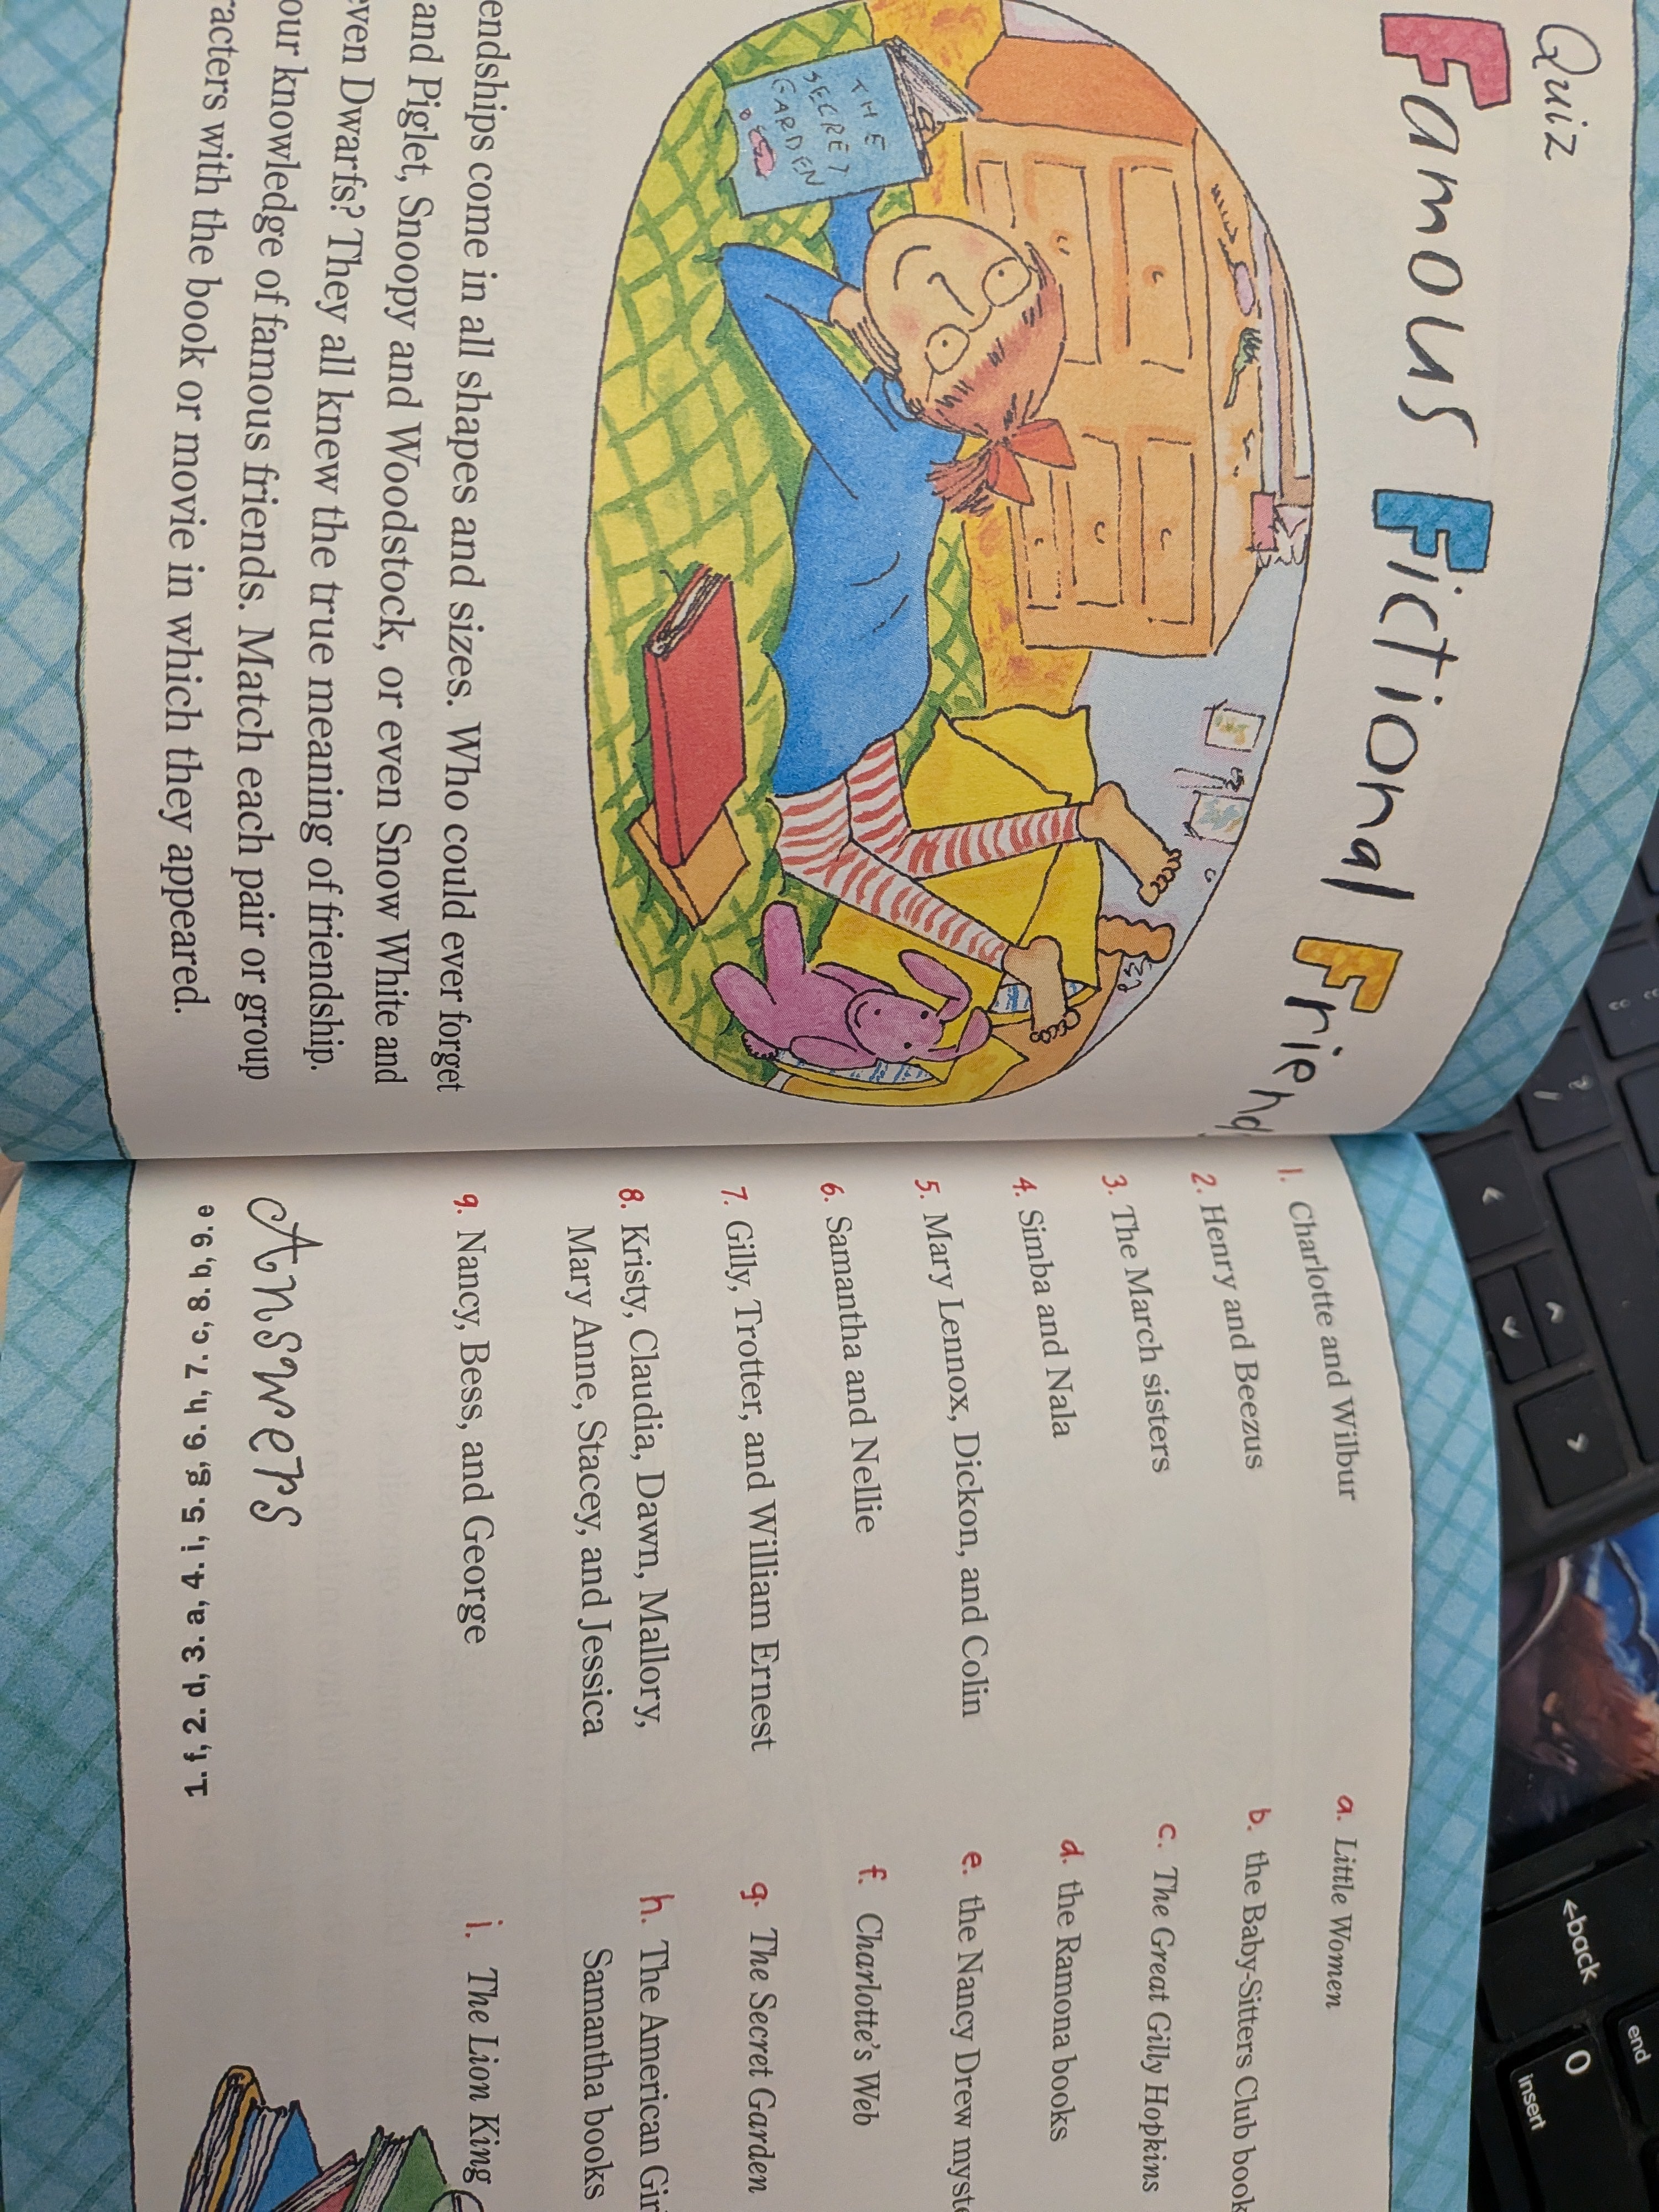 Quiz
Famous Fictional Friend
THE
SECRET
GARDEN
endships come in all shapes and sizes. Who could ever forget
and Piglet, Snoopy and Woodstock, or even Snow White and
even Dwarfs? They all knew the true meaning of friendship.
our knowledge of famous friends. Match each pair or group
racters with the book or movie in which they appeared.
1. Charlotte and Wilbur
2. Henry and Beezus
3. The March sisters
4. Simba and Nala
5. Mary Lennox, Dickon, and Colin
6. Samantha and Nellie
7. Gilly, Trotter, and William Ernest
8. Kristy, Claudia, Dawn, Mallory,
Mary Anne, Stacey, and Jessica
9. Nancy, Bess, and George
a. Little Women
b. the Baby-Sitters Club book
c. The Great Gilly Hopkins
d. the Ramona books
e. the Nancy Drew myste
f. Charlotte's Web
g. The Secret Garden
h. The American Gir
Samantha books
i. The Lion King
Answers
1. f, 2. d, 3. a, 4. i, 5. g, 6. h, 7. c, 8. b, 9. e
←back
end
0
insert